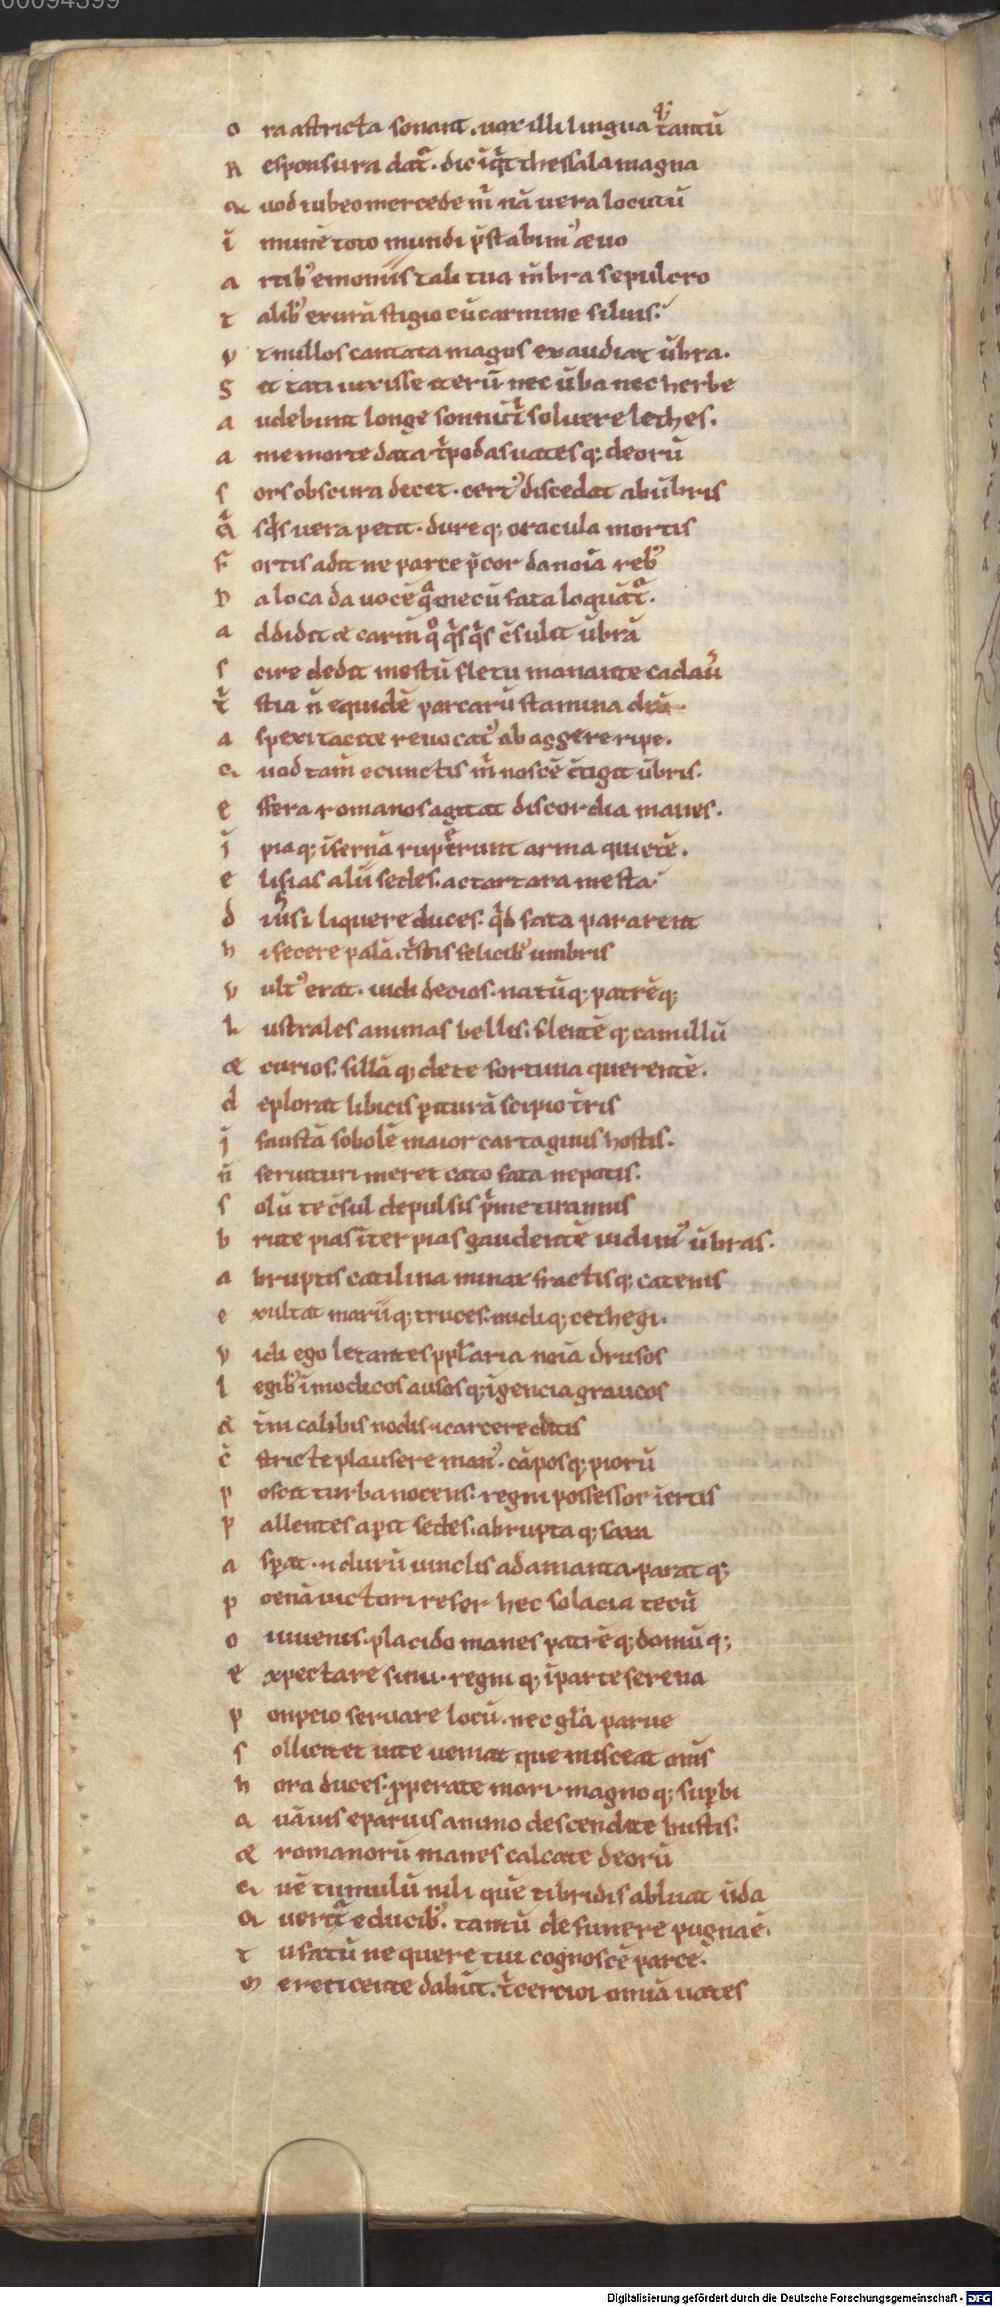 00094399
o ra astricta sonant. uox illi lingua q; tantū
R esponsura dat᷑. dic iq̄t thessala magna
Q uod iubeo mercede m̄ nā uera locutū
i munē toto mundi p̄stabim᷒ æuo
a rtib᷒ emoniis tali tua m̄bra sepulcro
t alib᷒ exurā stigio cū carmine siluis.
v t nullos cantata magos exaudiat ūbra.
S it tati uixisse iterū nec ūba nec herbe
a udebunt longe somnū t̄ soluere lethes.
a me morte data t̄podas uatesq; deorū
s ors obscura decet. cert᷒ discedat ab ūbris
q̄ sq̄s uera petit. dureq; oracula mortis
f ortis adit ne parce p̄cor da noīa reb᷒
D a loca da uocē q̄ mecū fata loquāt᷑.
a ddidit & carm̄ q̊ q̄sq̄s c̄sulit ūbrā
s cire dedit mestū fletu manante cadau᷑
t̄ stia n̄ equidē parcarū stamina dix
a spexi tacite reuocat᷒ ab aggere ripe.
Q uod tam̄ e cunctis m̄ noscē c̄tigit ūbris.
e ffera romanos agitat discordia manes.
i piaq; īfernā ruperunt arma quietē.
e lisias alii sedes. ac tartara mesta
d iu᷑si liquere duces. q̄d fata pararent
h i fecere palā. t̄stis felicib᷒ umbris
v ult᷒ erat. uidi decios. natūq; patrēq;
L ustrales animas bellis. flentē q; camillū
& curios. sillā q; de te fortuna querentē.
d eplorat libicis piturā scipio t̄ris
i faustā sobolē maior cartaginis hostis.
n̄ seruituri meret cato fata nepotis.
s olū te c̄sul depulsis p̄me tirannis
b rute pias īter pias gaudentē uidim᷒ ūbras.
a bruptis catilina minax fractisq; catenis
e xultat mariiq; truces. nudiq; cethegi.
v idi ego letantes pplaria noīa drusos
l egib᷒ īmodicos ausosq; īgencia graccos
æ t̄ni calibis nodis. & carcere ditis
c̄ stricte plausere man᷒. cāposq; piorū
p oscit turba nocens. regni possessor īertis
p allentes apit sedes. abruptaq; saxa
a spat. & durū uinclis adamanta. paratq;
p oenā uictori refer hec solacia tecū
o iuuenis. placido manes patrēq; domūq;
e xpectare sinu. regniq; īparte serena
p onpeio seruare locū. nec gl̄a parue
s ollicitet uite ueniat que misceat om̄s
h ora duces. pperate mori. magnoq; supbi
Q uāuis eparuis animo descendite bustis.
& romanorū manes calcate deorū
Q uē tumulū nili quē tibridis abluat ūda
Q uerit᷑ e ducib᷒. tantū de funere pugna ē.
t u fatū ne quere tui cognoscē parce.
m e reticente dabūt. t̄ cercior omīa uates
Digitalisierung gefördert durch die Deutsche Forschungsgemeinschaft - DFG